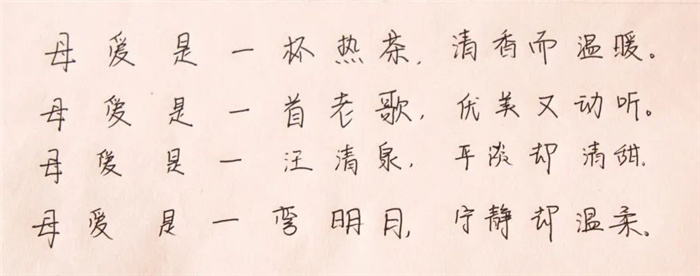 母爱是一杯热茶,清香而温暖。
母爱是一首老歌,优美又动听。
母爱是一汪清泉,平淡却清甜.
母爱是一弯明月,宁静却温柔。